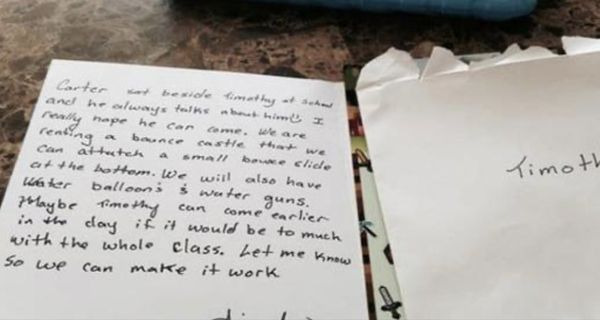 Carter sat beside Timothy at school
and he always talks about him I
really hope he can come. We are
renting a bounce castle that we
can attatch a small bounce slide
at the bottom. We will also have
Water balloons & water guns.
Maybe Timothy can come earlier
in the day if it would be to much
with the whole class. Let me know
So we can make it work
Timoth